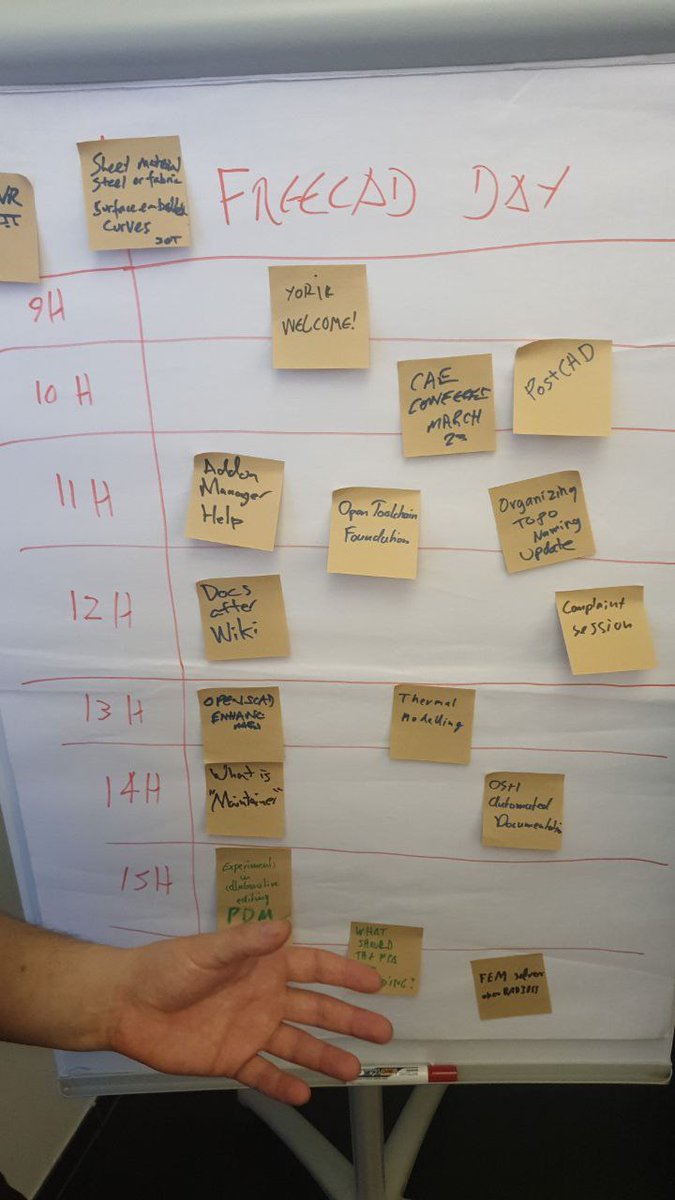 VR
IT
Sheet material
Steel or fabric
Surface embedded
curves
FREECAD DAY
9H
YORIK
WELCOME!
10 H
CAE
MARCH
23
PostCAD
11 H
Addon
Manager
Help
Open Toolchain
Foundation
Organizing
TOPO
Naming
Update
12 H
Docs
after
Wiki
Complaint
session
13 H
OPENSCAD
ENHANC
Thermal
Modelling
14H
What is
"Maintainer"
OSH
Automated
Documentation
15H
Experiments
in
collaborative
editing
PDM
WHAT
SHOULD
THE FPA
DING?
FEM solver